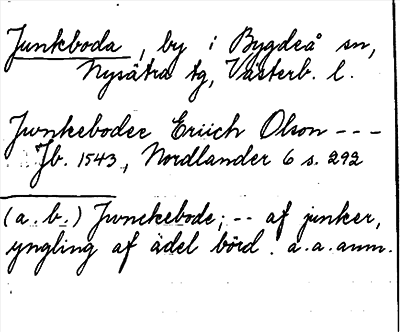 Junkboda, by i Bygdeå sn,
Nysätra tg, Västerb. l.
Jwnkebodee Eriich Olson ---
Jb. 1543, Nordlander 6 s. 292
(a. b.) Jwnckebode; -- af junker,
yngling af ädel börd. a.a. anm.